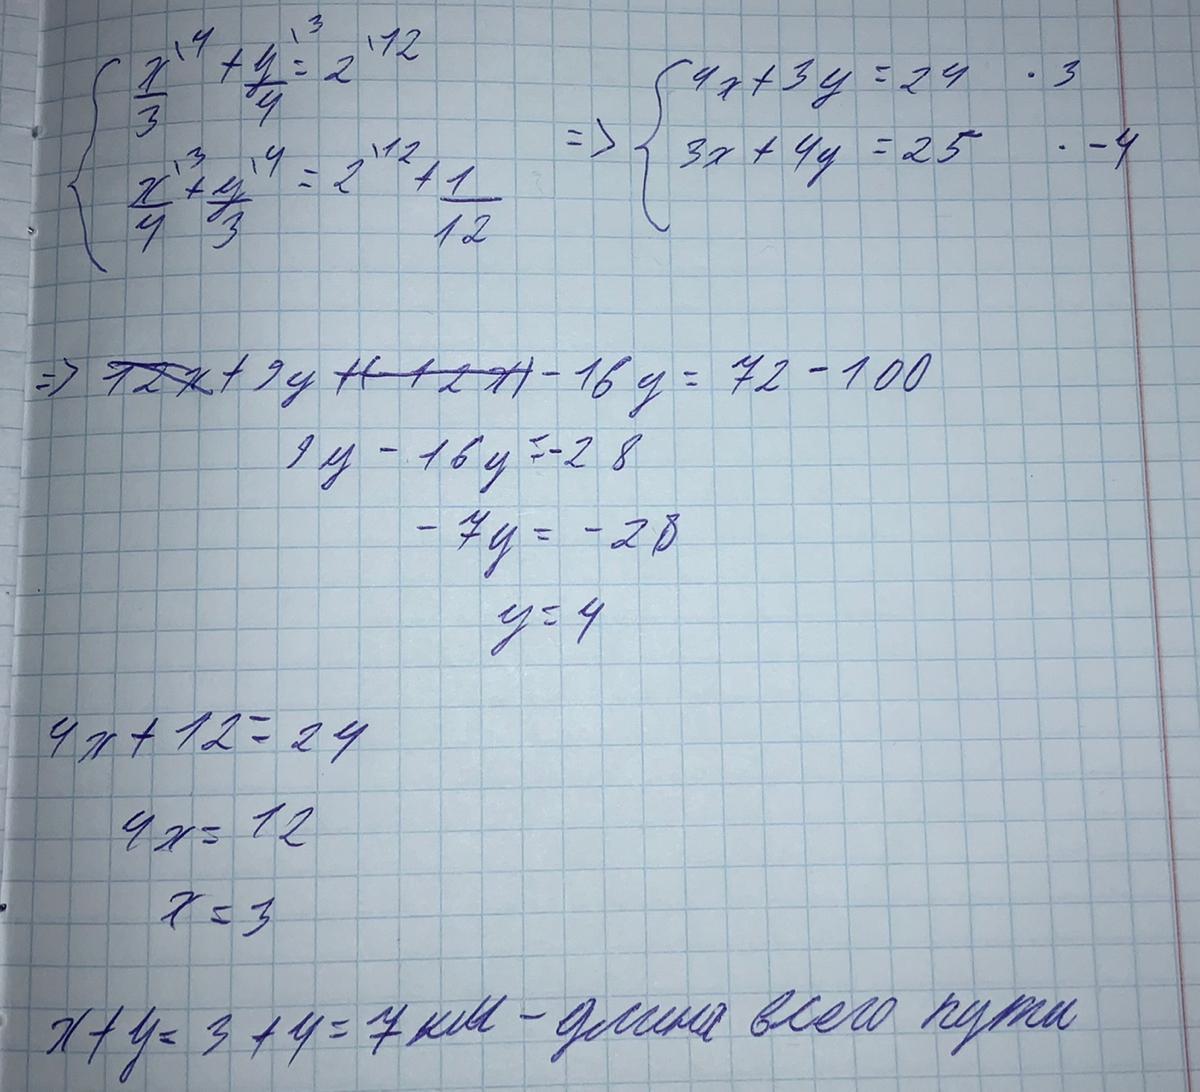 x/3 \4 + y/4 \3 = 2 \12
x/4 \3 + y/3 \4 = 2 \12 + 1/12
=> 4x + 3y = 24 · 3
3x + 4y = 25 · -4
=> 12x + 9y + (-12x) - 16y = 72 - 100
9y - 16y = -28
-7y = -28
y = 4
4x + 12 = 24
4x = 12
x = 3
x + y = 3 + 4 = 7 км - длина всего пути